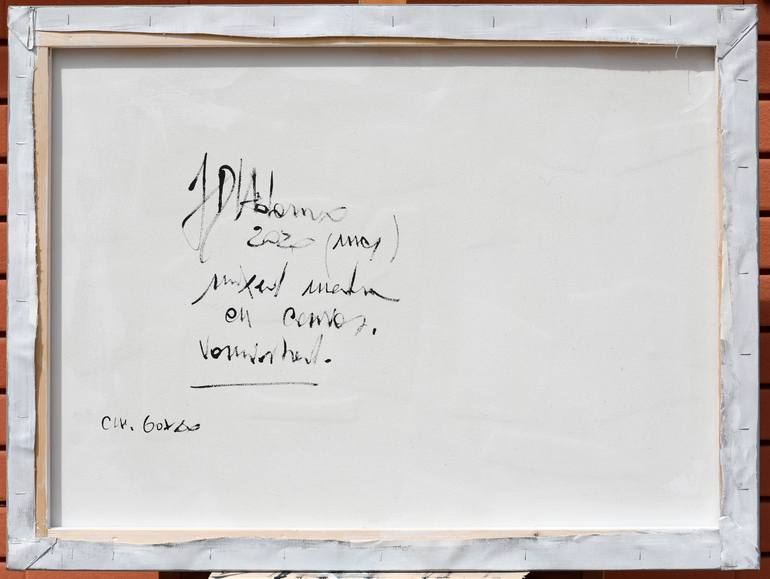 J D'Adamo
2020 (may)
mixed media
on canvas.
varnished.
cm. 60x80